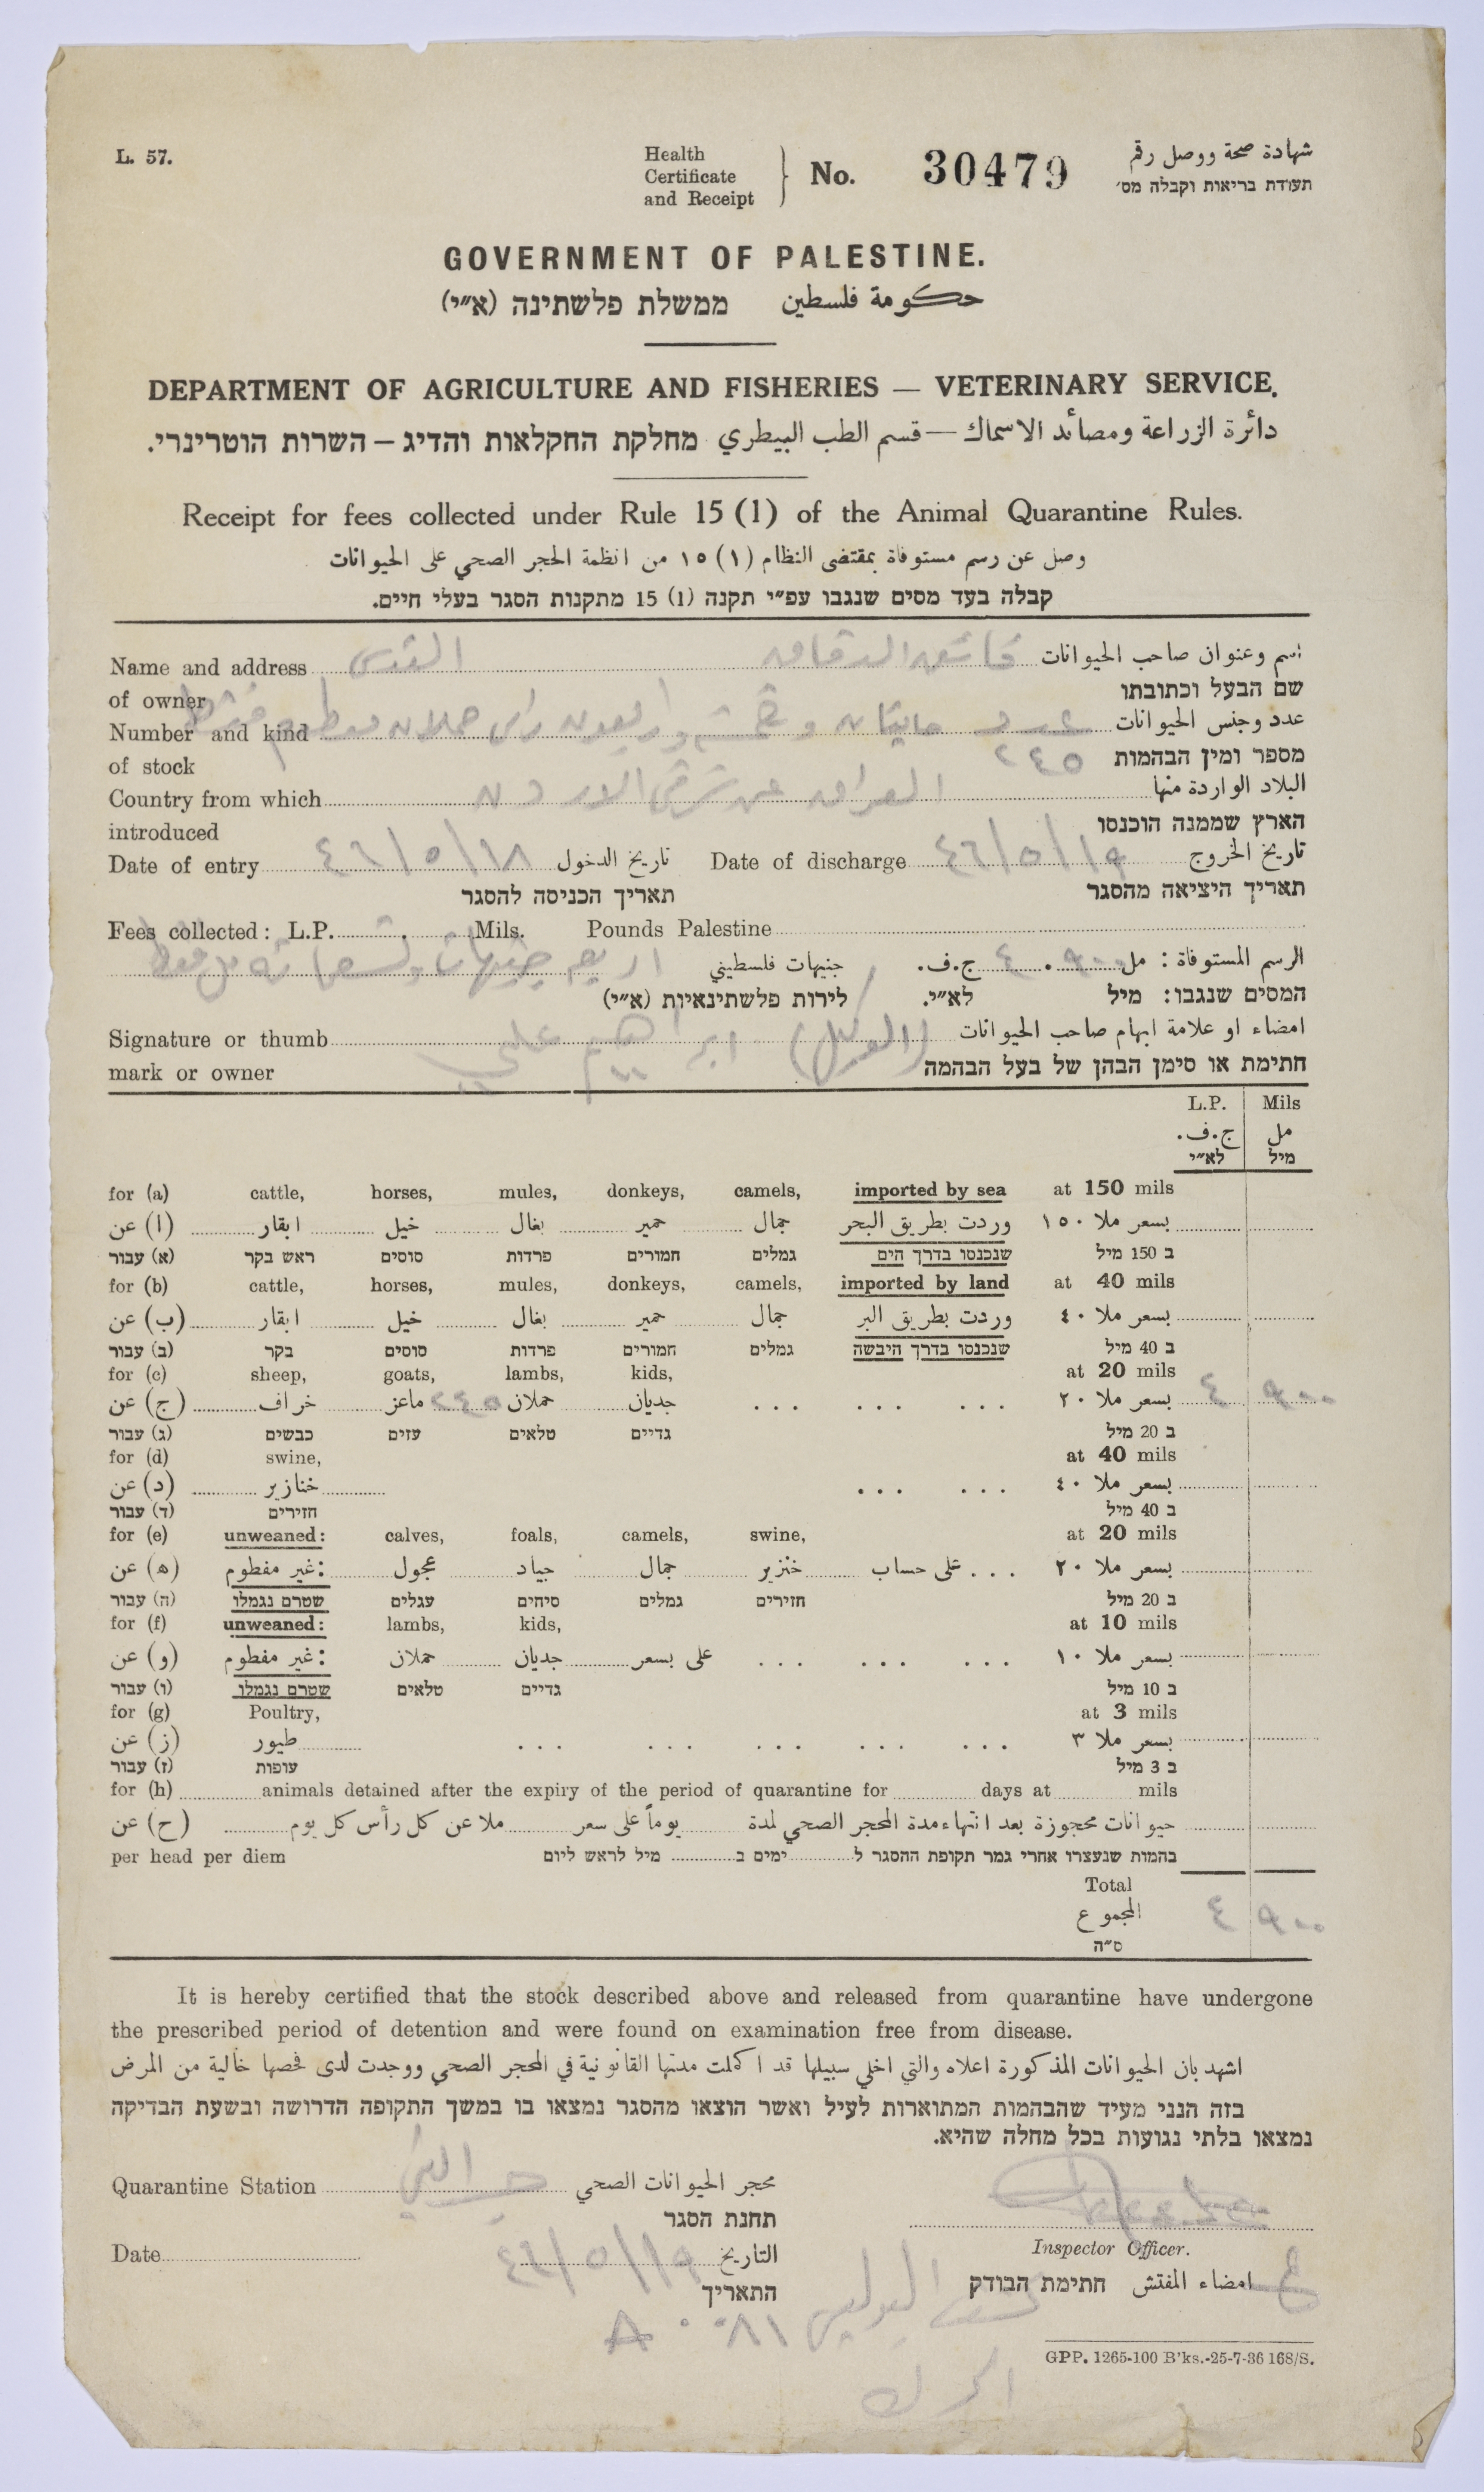 L. 57.
Health
Certificate
and Receipt
No. 30479
شهادة صحة ووصل رقم
תעודת בריאות וקבלה מס׳
GOVERNMENT OF PALESTINE.
حكومة فلسطين ממשלת פלשתינה (א״י)
DEPARTMENT OF AGRICULTURE AND FISHERIES — VETERINARY SERVICE.
دائرة الزراعة ومصائد الاسماك — قسم الطب البيطري מחלקת החקלאות והדיג – השרות הוטרינרי.
Receipt for fees collected under Rule 15 (1) of the Animal Quarantine Rules.
وصل عن رسم مستوفاة بمقتضى النظام (١) ١٥ من انظمة الحجر الصحي على الحيوانات
קבלה בעד מסים שנגבו עפ״י תקנה (1) 15 מתקנות הסגר בעלי חיים.
Name and address القدس اسم وعنوان صاحب الحيوانات
of owner שם הבעל וכתובתו
Number and kind عدد وخمسة واربعون راس حملان عدد وجنس الحيوانات
of stock ٢٤٥ מספר ומין הבהמות
Country from which العراق عن شرقي الاردن البلاد الواردة منها
introduced הארץ שממנה הוכנסו
Date of entry ٤٦/٥/١٨ تاريخ الدخول Date of discharge ٤٦/٥/١٩ تاريخ الخروج
תאריך הכניסה להסגר תאריך היציאה מהסגר
Fees collected: L.P. . Mils. Pounds Palestine
الرسم المستوفاة: مل ٩٠٠ . ٤ ج.ف. جنيهات فلسطيني اربع جنيهات وتسعمائة مل فقط
המסים שנגבו: מיל לא״י. לירות פלשתינאיות (א״י)
Signature or thumb ابراهيم علي (الوكيل) امضاء او علامة ابهام صاحب الحيوانات
mark or owner חתימת או סימן הבהן של בעל הבהמה
L.P. Mils
ج.ف. مل
לא״י מיל
for (a) cattle, horses, mules, donkeys, camels, imported by sea at 150 mils
(ا) عن ابقار خيل بغال حمير جمال وردت بطريق البحر بسعر ملا ١٥٠
(א) עבור ראש בקר סוסים פרדות חמורים גמלים שנכנסו בדרך הים ב 150 מיל
for (b) cattle, horses, mules, donkeys, camels, imported by land at 40 mils
(ب) عن ابقار خيل بغال حمير جمال وردت بطريق البر بسعر ملا ٤٠
(ב) עבור בקר סוסים פרדות חמורים גמלים שנכנסו בדרך היבשה ב 40 מיל
for (c) sheep, goats, lambs, kids, at 20 mils
(ج) عن خراف ماعز ٢٤٥ حملان جديان ... ... ... بسعر ملا ٢٠ ٤ ٩٠٠
(ג) עבור כבשים עזים טלאים גדיים ב 20 מיל
for (d) swine, at 40 mils
(د) عن خنازير ... ... بسعر ملا ٤٠
(ד) עבור חזירים ב 40 מיל
for (e) unweaned: calves, foals, camels, swine, at 20 mils
(ه) عن غير مفطوم: عجول جياد جمال خنزير على حساب ... بسعر ملا ٢٠
(ה) עבור שטרם נגמלו עגלים סיחים גמלים חזירים ב 20 מיל
for (f) unweaned: lambs, kids, at 10 mils
(و) عن غير مفطوم: حملان جديان على بسعر ... ... ... بسعر ملا ١٠
(ו) עבור שטרם נגמלו טלאים גדיים ב 10 מיל
for (g) Poultry, at 3 mils
(ز) عن طيور ... ... ... ... ... بسعر ملا ٣
(ז) עבור עופות ב 3 מיל
for (h) animals detained after the expiry of the period of quarantine for days at mils
(ح) عن حيوانات محجوزة بعد انتهاء مدة المحجر الصحي لمدة يوماً على سعر ملا عن كل رأس كل يوم
per head per diem בהמות שנעצרו אחרי גמר תקופת ההסגר ל ימים ב מיל לראש ליום
Total
المجموع ٤ ٩٠٠
ס״ה
It is hereby certified that the stock described above and released from quarantine have undergone
the prescribed period of detention and were found on examination free from disease.
اشهد بان الحيوانات المذكورة اعلاه والتي اخلي سبيلها قد اكملت مدتها القانونية في المحجر الصحي ووجدت لدى فحصها خالية من المرض
בזה הנני מעיד שהבהמות המתוארות לעיל ואשר הוצאו מהסגר נמצאו בו במשך התקופה הדרושה ובשעת הבדיקה
נמצאו בלתי נגועות בכל מחלה שהיא.
Quarantine Station محجر الحيوانات الصحي
תחנת הסגר
Date ٤٦/٥/١٩ التاريخ
התאריך
Inspector Officer.
امضاء المفتش חתימת הבודק
GPP. 1265-100 B'ks.-25-7-36 168/S.